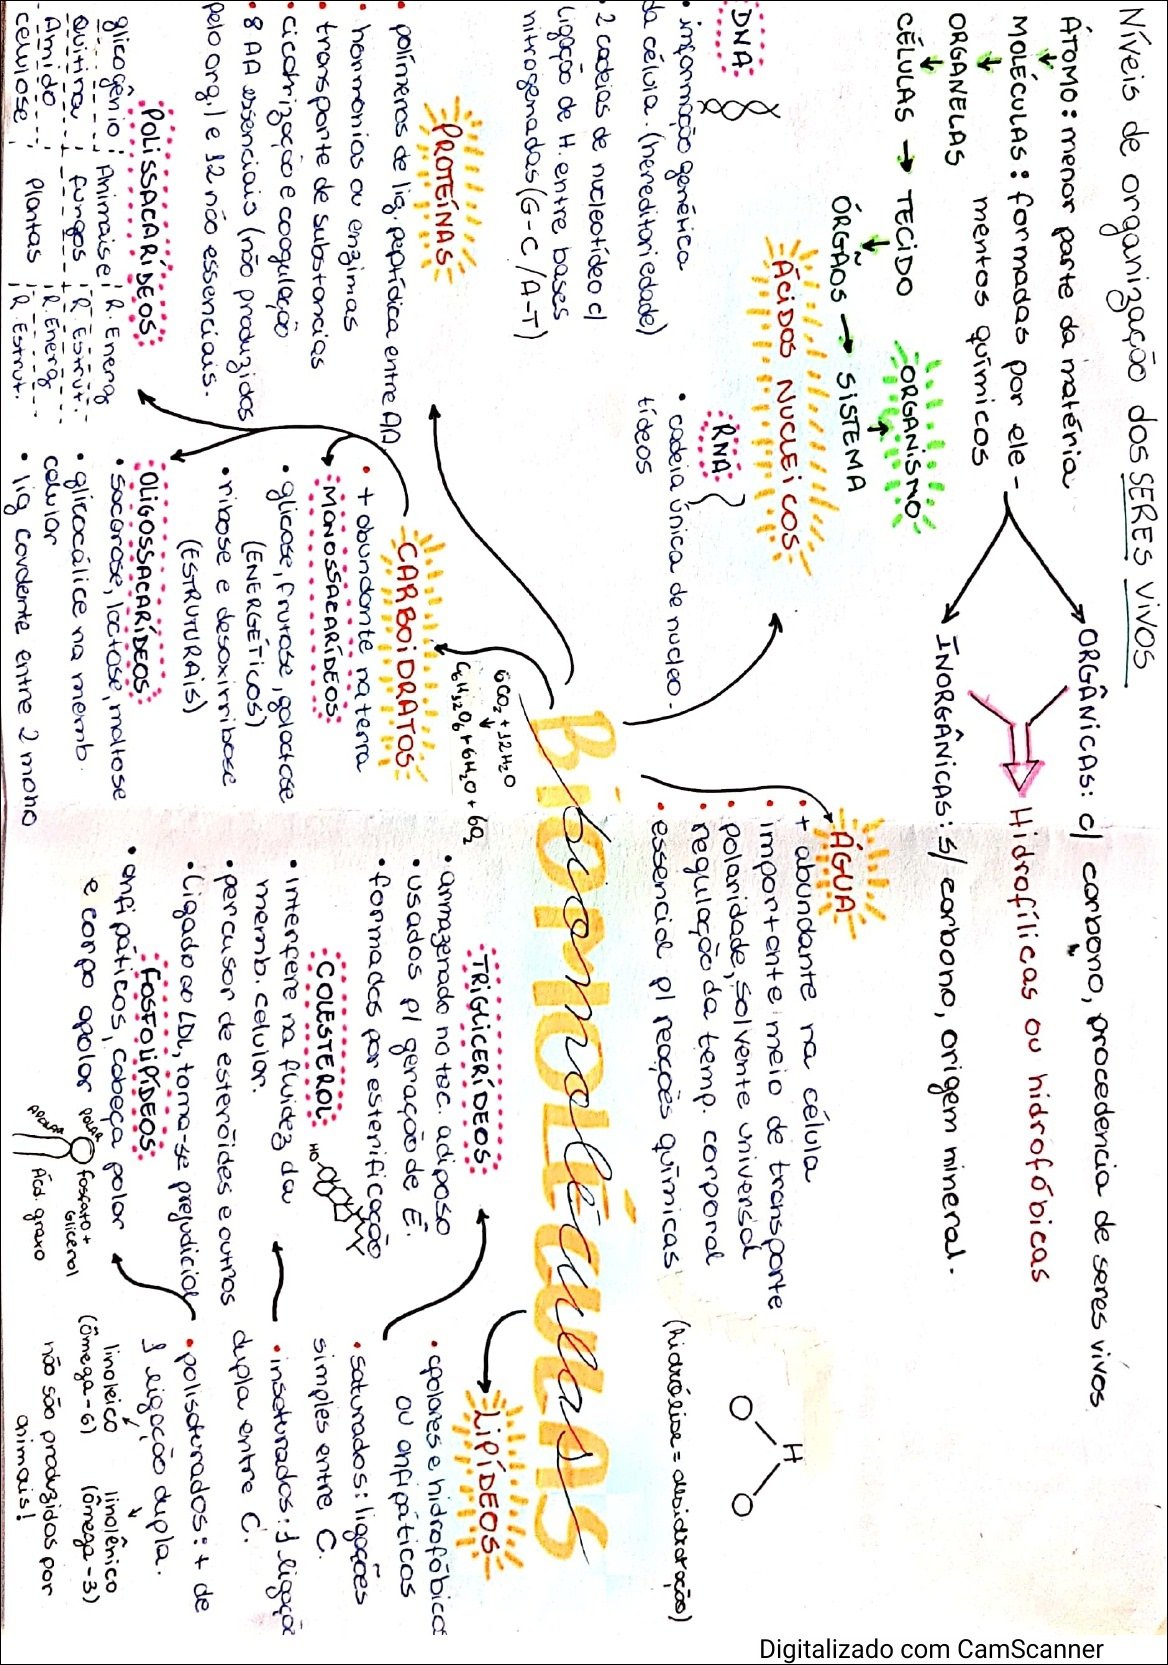 Níveis de organização dos SERES VIVOS
ÁTOMO: menor parte da matéria
MOLÉCULAS: formadas por ele-
mentos químicos
ORGANELAS
CÉLULAS → TECIDO
ÓRGÃOS → SISTEMA
ORGANISMO
ORGÂNICAS: c/ carbono, procedencia de seres vivos
Hidrofílicas ou hidrofóbicas
INORGÂNICAS: s/ carbono, origem mineral.
ÁCIDOS NUCLEICOS
DNA
• informação genética
da célula. (hereditariedade)
• 2 cadeias de nucleotídeo c/
ligação de H. entre bases
nitrogenadas (G-C / A-T)
RNA
• cadeia única de nucleo-
tídeos
ÁGUA
• + abundante na célula
• importante meio de transporte
• polaridade, solvente universal
• regulação da temp. corporal
• essencial p/ reações químicas
(hidrólise = desidratação)
H
O O
BiOMOLÉCULAS
Biomoléculas
PROTEÍNAS
• polímeros de lig. peptídica entre AA
• hormônios ou enzimas
• transporte de substancias
• cicatrização e coagulação
• 8 AA essenciais (não produzidos
pelo org.) e 12 não essenciais.
6CO₂ + 12H₂O
C₆H₁₂O₆ + 6H₂O + 6O₂
CARBOIDRATOS
• + abundante na terra
MONOSSACARÍDEOS
• glicose, frutose, galactose
(ENERGÉTICOS)
• ribose e desoxirribose
(ESTRUTURAIS)
OLIGOSSACARÍDEOS
• sacarose, lactose, maltose
• glicocálice na memb.
celular
• lig covalente entre 2 mono
POLISSACARÍDEOS
glicogênio Animais R. Energ
Quitina fungos R Estrut.
Amido Plantas R. Energ
celulose R. Estrut.
LIPÍDEOS
• apolares e hidrofóbicos
ou anfipáticos
• saturados: ligações
simples entre C.
• insaturados: 1 ligação
dupla entre C.
• polisaturados: + de
1 ligação dupla.
linoleico linolênico
(ômega-6) (ômega-3)
não são produzidos por
animais!
TRIGLICERÍDEOS
• armazenado no tec. adiposo
• usados p/ geração de E.
• formados por esterificação
COLESTEROL
HO
• interfere na fluidez da
memb. celular.
• percusor de esteróides e outros
• Ligado ao LDL, torna-se prejudicial
FOSFOLIPÍDEOS
• anfipáticos, cabeça polar
e corpo apolar
POLAR fosfato +
Glicerol
APOLAR Ácd. graxo
Digitalizado com CamScanner